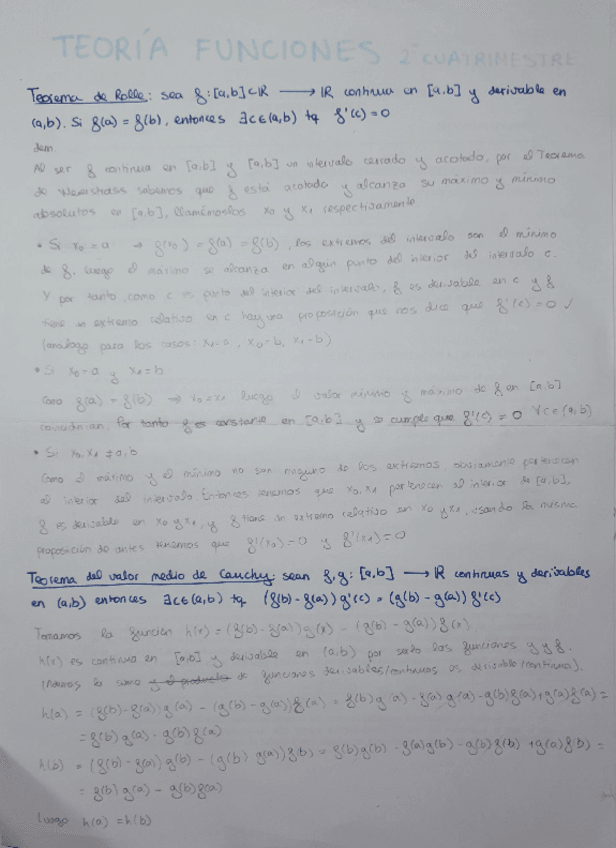 TEORÍA FUNCIONES 2º CUATRIMESTRE
Teorema de Rolle: sea f:[a,b]⊂ℝ → ℝ continua en [a,b] y derivable en
(a,b). Si f(a) = f(b), entonces ∃c∈(a,b) tq f'(c)=0
dem
Al ser f continua en [a,b] y [a,b] un intervalo cerrado y acotado, por el Teorema
de sabemos que f está acotada y alcanza su máximo y mínimo
absolutos en [a,b], llamémoslos x₀ y x₁ respectivamente
• Si x₀ = a → f(x₀) = f(a) = f(b), los extremos del intervalo son el mínimo
de f, luego el máximo se alcanza en algún punto del interior del intervalo c.
Y por tanto, como c es punto del interior del intervalo, f es derivable en c y f
tiene un extremo relativo en c hay una proposición que nos dice que f'(c)=0
(análogo para los casos: x₁=a, x₀=b, x₁=b)
• Si x₀=a y x₁=b
Como f(a) = f(b) → luego el valor mínimo y máximo de f en [a,b]
coincidirían. Por tanto f es constante en [a,b] y se cumple que f'(c) = 0 ∀c∈(a,b)
• Si x₀, x₁ ≠ a,b
Como el máximo y el mínimo no son ninguno de los extremos, obviamente pertenecen
al interior del intervalo. Entonces tenemos que x₀, x₁ pertenecen al interior de [a,b],
f es derivable en x₀ y x₁, y f tiene un extremo relativo en x₀ y x₁, usando la misma
proposición de antes tenemos que f'(x₀)=0 y f'(x₁)=0
Teorema del valor medio de Cauchy: sean f,g: [a,b] → ℝ continuas y derivables
en (a,b) entonces ∃c∈(a,b) tq (f(b)-f(a))g'(c) = (g(b)-g(a))f'(c)
Tomamos la función h(x) = (f(b)-f(a))g(x) - (g(b)-g(a))f(x)
h(x) es continua en [a,b] y derivable en (a,b) por serlo las funciones g y f.
(Además la suma y el producto de funciones derivables/continuas es derivable/continua).
h(a) = (f(b)-f(a))g(a) - (g(b)-g(a))f(a) = f(b)g(a) - f(a)g(a) - g(b)f(a) + g(a)f(a) =
= f(b)g(a) - g(b)f(a)
h(b) = (f(b)-f(a))g(b) - (g(b)-g(a))f(b) = f(b)g(b) - f(a)g(b) - g(b)f(b) + g(a)f(b) =
= f(b)g(a) - g(b)f(a)
Luego h(a) = h(b)